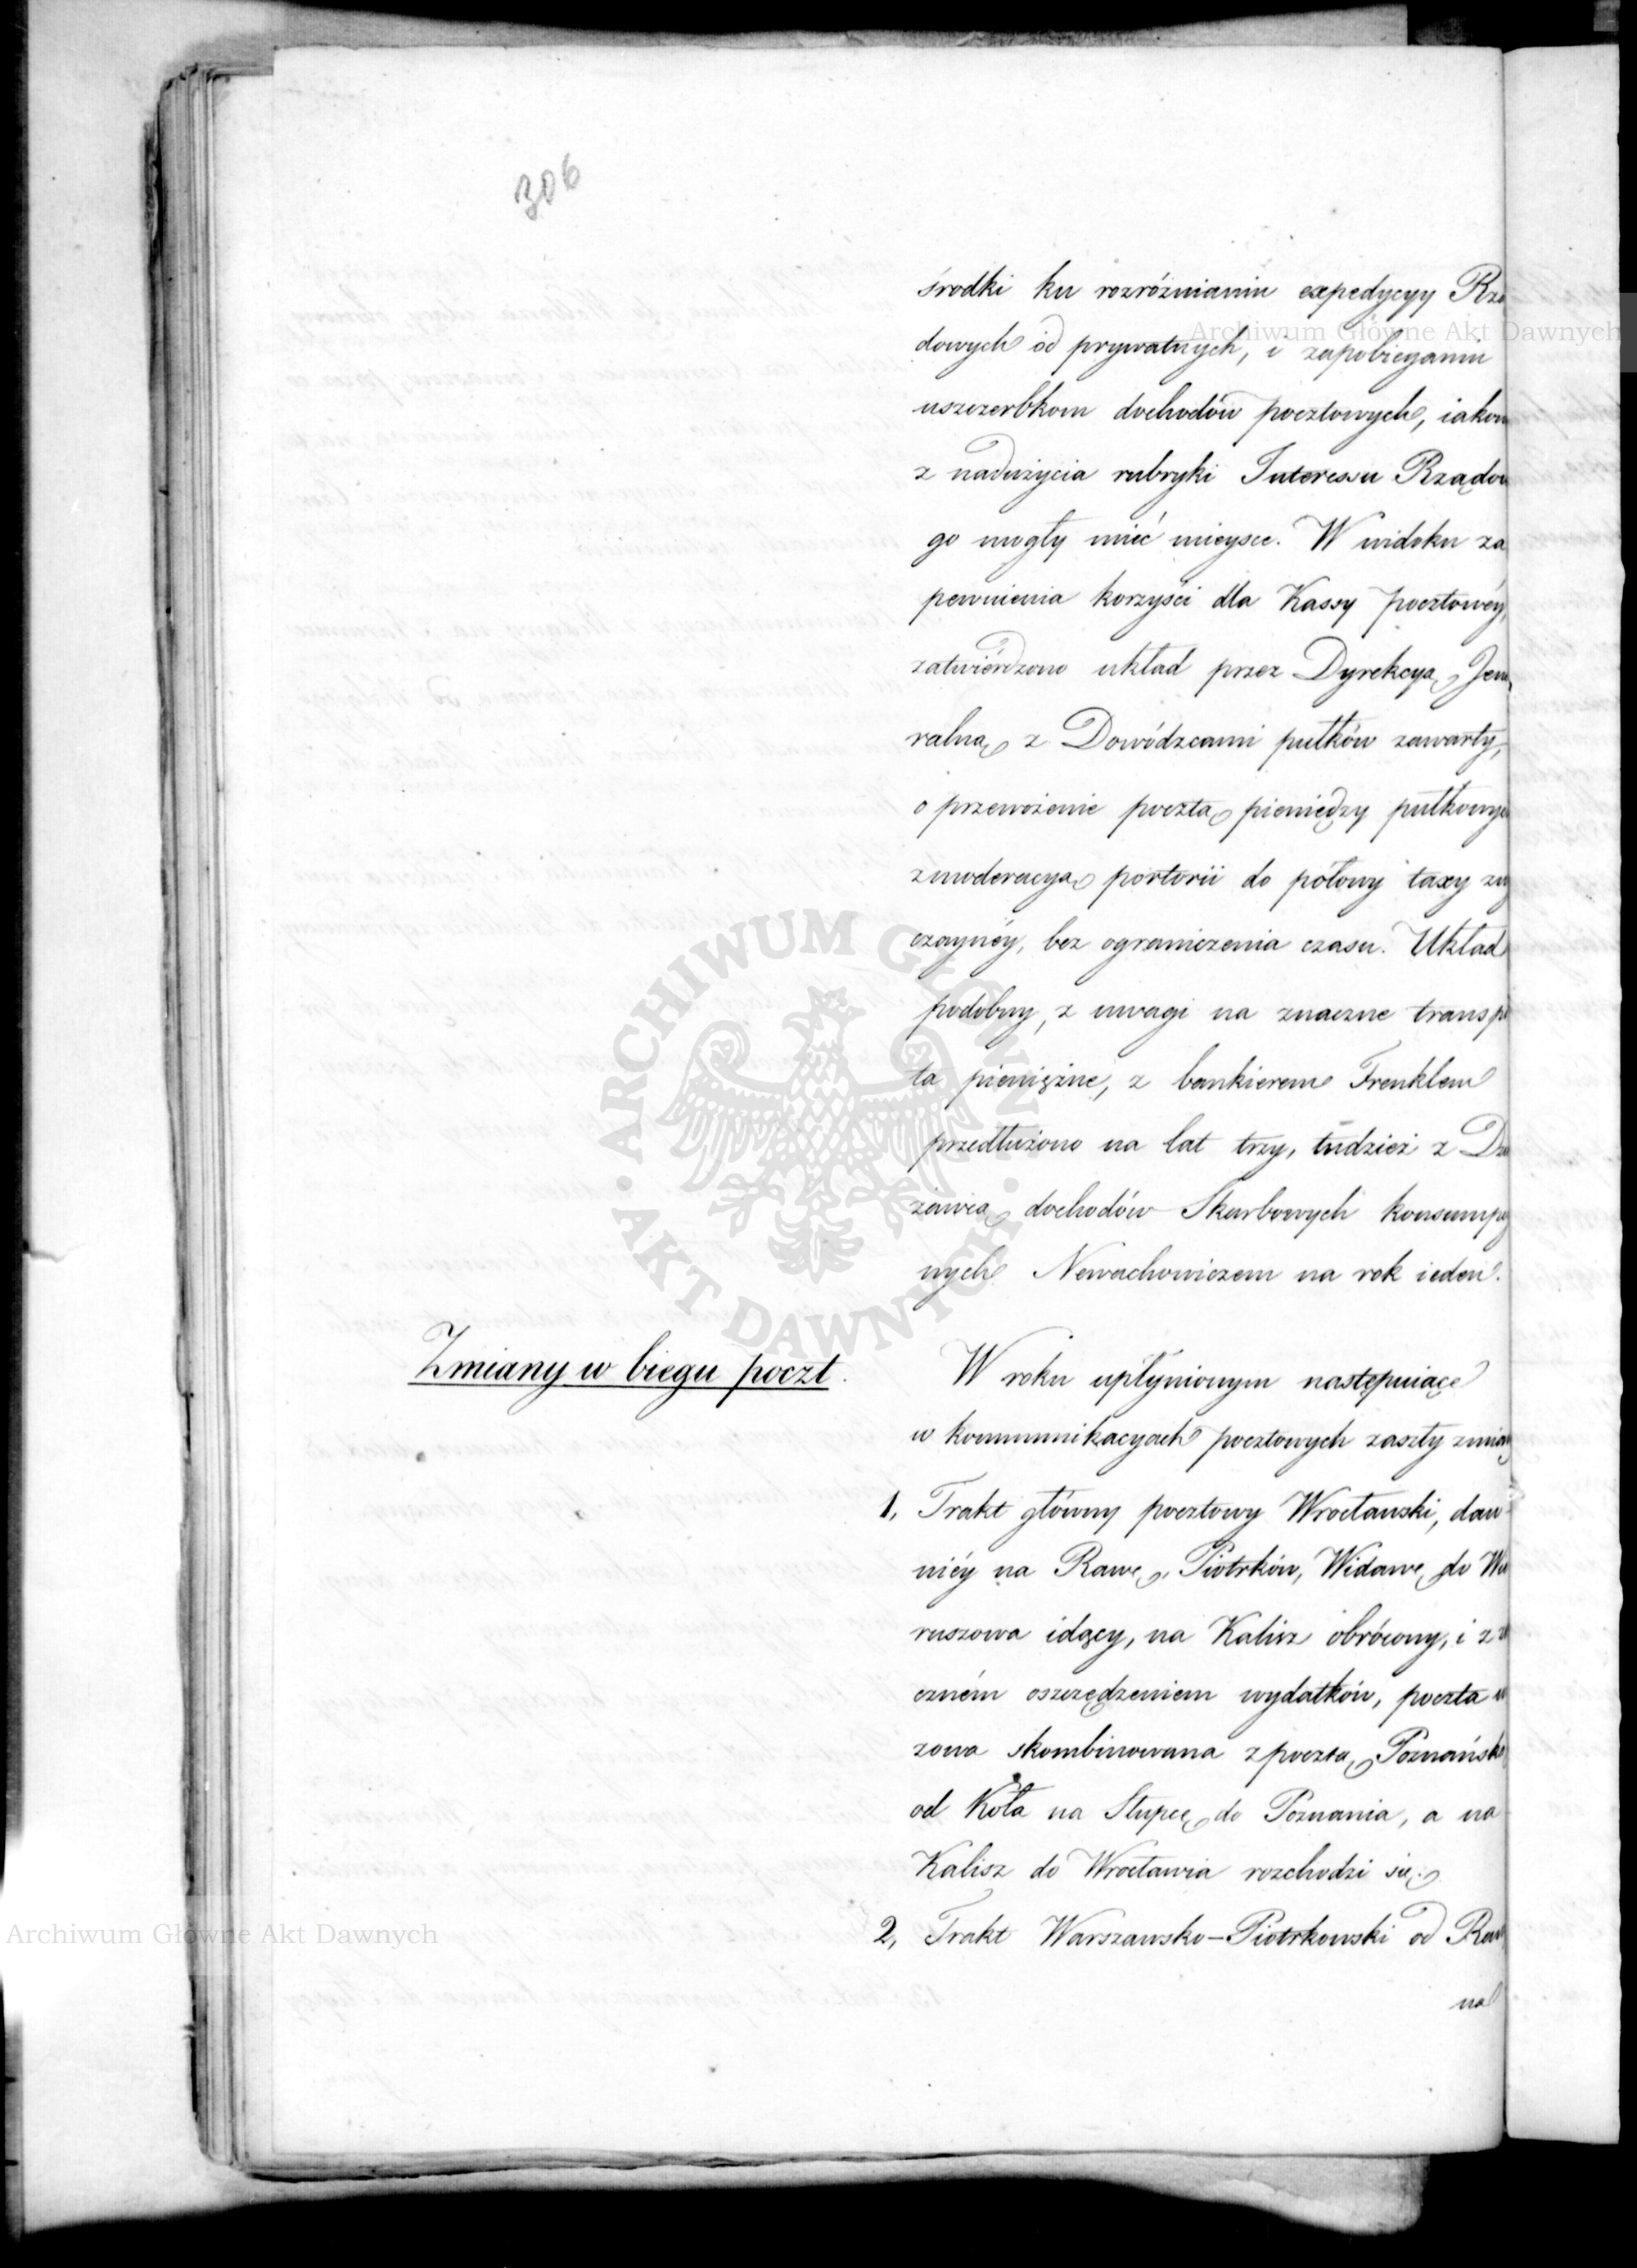 306
środki ku rozróżnianiu expedycyy Rzą
dowych od prywatnych, i zapobieganiu
uszczerbkom dochodów pocztowych, iakow
z nadużycia rubryki Interessu Rządow
go mogły mieć mieysce. W widoku za
pewnienia korzyści dla Kassy pocztowéy,
zatwiérdzono układ przez Dyrekcyą Jene
ralną z Dowódzcami pułków zawarty,
o przewożenie pocztą pieniędzy pułkowyc
z moderacyą portorii do połowy taxy zwy
czaynéy, bez ograniczenia czasu. Układ
podobny, z uwagi na znaczne transpo
ta pieniężne, z bankierem Frenklem
przedłużono na lat trzy, tudzież z Dzie
żawcą dochodów Skarbowych konsumpcy
nych Newachowiczem na rok ieden.
Zmiany w biegu poczt.
W roku upłynionym następuiące
w kommunikacyach pocztowych zaszły zmiany
1, Trakt główny pocztowy Wrocławski, daw-
niéy na Rawę, Piotrków, Widawę do Wie
ruszowa idący, na Kalisz obrócony, i z zn
czném oszczędzeniem wydatków, poczta w
zowa skombinowana z pocztą Poznańską
od Koła na Słupcę do Poznania, a na
Kalisz do Wrocławia rozchodzi się.
2, Trakt Warszawsko-Piotrkowski od Raw
na
Archiwum Główne Akt Dawnych
Archiwum Główne Akt Dawnych
ARCHIWUM GŁÓWNE AKT DAWNYCH